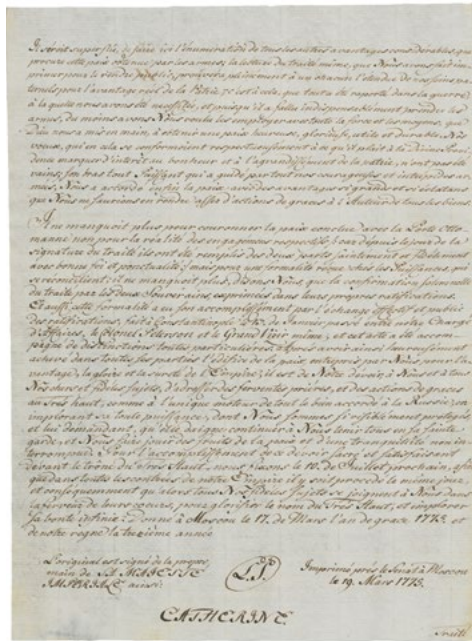 Il seroit superflu, de faire ici l'énumération de tous les autres avantages considérables, que
procure cette paix obtenue par les armes; la lecture du traité même, que Nous avons fait im-
primer pour le rendre public, prouvera pleinement à un chacun l'étendue de nos soins pa-
ternels pour l'avantage réel de la Patrie
à laquelle nous avons été et puisqu'il a fallu indispensablement prendre les
armes, du moins avons Nous voulu les employer avec toute la force et les moyens, que
Dieu nous a mis en main, à obtenir une paix heureuse, glorieuse, utile et durable. Nos
voeux, qui en cela se conformoient respectueusement à ce qu'il plait à la Divine Provi-
dence marquer d'intérêt au bonheur et à l'agrandissement de la patrie, n'ont pas été
vains; son bras tout Puissant qui a guidé par tout nos courageuses et intrépides ar-
mées, Nous a accordé enfin la paix avec des avantages si grands et si éclatans
que Nous ne saurions en rendre assez d'actions de graces à l'Auteur de tous les biens.
Il ne manquoit plus pour couronner la paix conclue avec la Porte Otto-
manne non pour la réalité des engagemens respectifs, car depuis le jour de la
signature du traité ils ont été remplis des deux parts saintement et fidelement
avec bonne foi et ponctualité; mais pour une formalité reçue chez les Puissances, qui
se réconcilient; il ne manquoit plus, disons Nous, que la confirmation solemnelle
du traité par les deux Souverains, exprimée dans leurs propres ratifications.
Et aussi cette formalité a eu son accomplissement par l'échange effectif et public
des ratifications, fait à Constantinople le de Janvier passé entre notre Chargé
d'Affaires, le Colonel Peterson et le Grand Vizir même, et cet acte a été accom-
pagné de distinctions
achevé dans toutes ses parties l'édifice de la paix, entrepris par Nous, pour l'a-
vantage, la gloire et la sureté de l'Empire; il est de Notre devoir à Nous et à tous
Nos chers et fidèles sujets, d'adresser de ferventes prières, et des actions de graces
au Très Haut, comme à l'unique auteur de tout le bien accordé à la Russie; en
implorant sa toute puissance, dont Nous sommes si visiblement protégés,
et lui demandant, qu'elle daigne continuer à Nous tenir tous en sa sainte
garde, et Nous faire jouir des fruits de la paix et d'une tranquilité non in-
terrompue. Pour l'accomplissement de ce devoir sacré et satisfaisant
devant le trône du Très Haut, nous fixons le 10. de Juillet prochain, afin
que dans toutes les contrées de notre Empire il y soit procédé le même jour,
et conséquemment qu'alors tous Nos fidèles sujets se joignent à Nous dans
la ferveur de leurs coeurs, pour glorifier le nom du Très Haut, et implorer
sa bonté infinie. Donné à Moscou le 17. de Mars l'an de grace 1775. et
de notre regne la treizieme année
L'original est signé de la propre
main de SA MAJESTÉ
IMPERIALE ainsi:
L.S.
Imprimé près le Sénat à Moscou
le 19. Mars 1775.
CATHERINE.